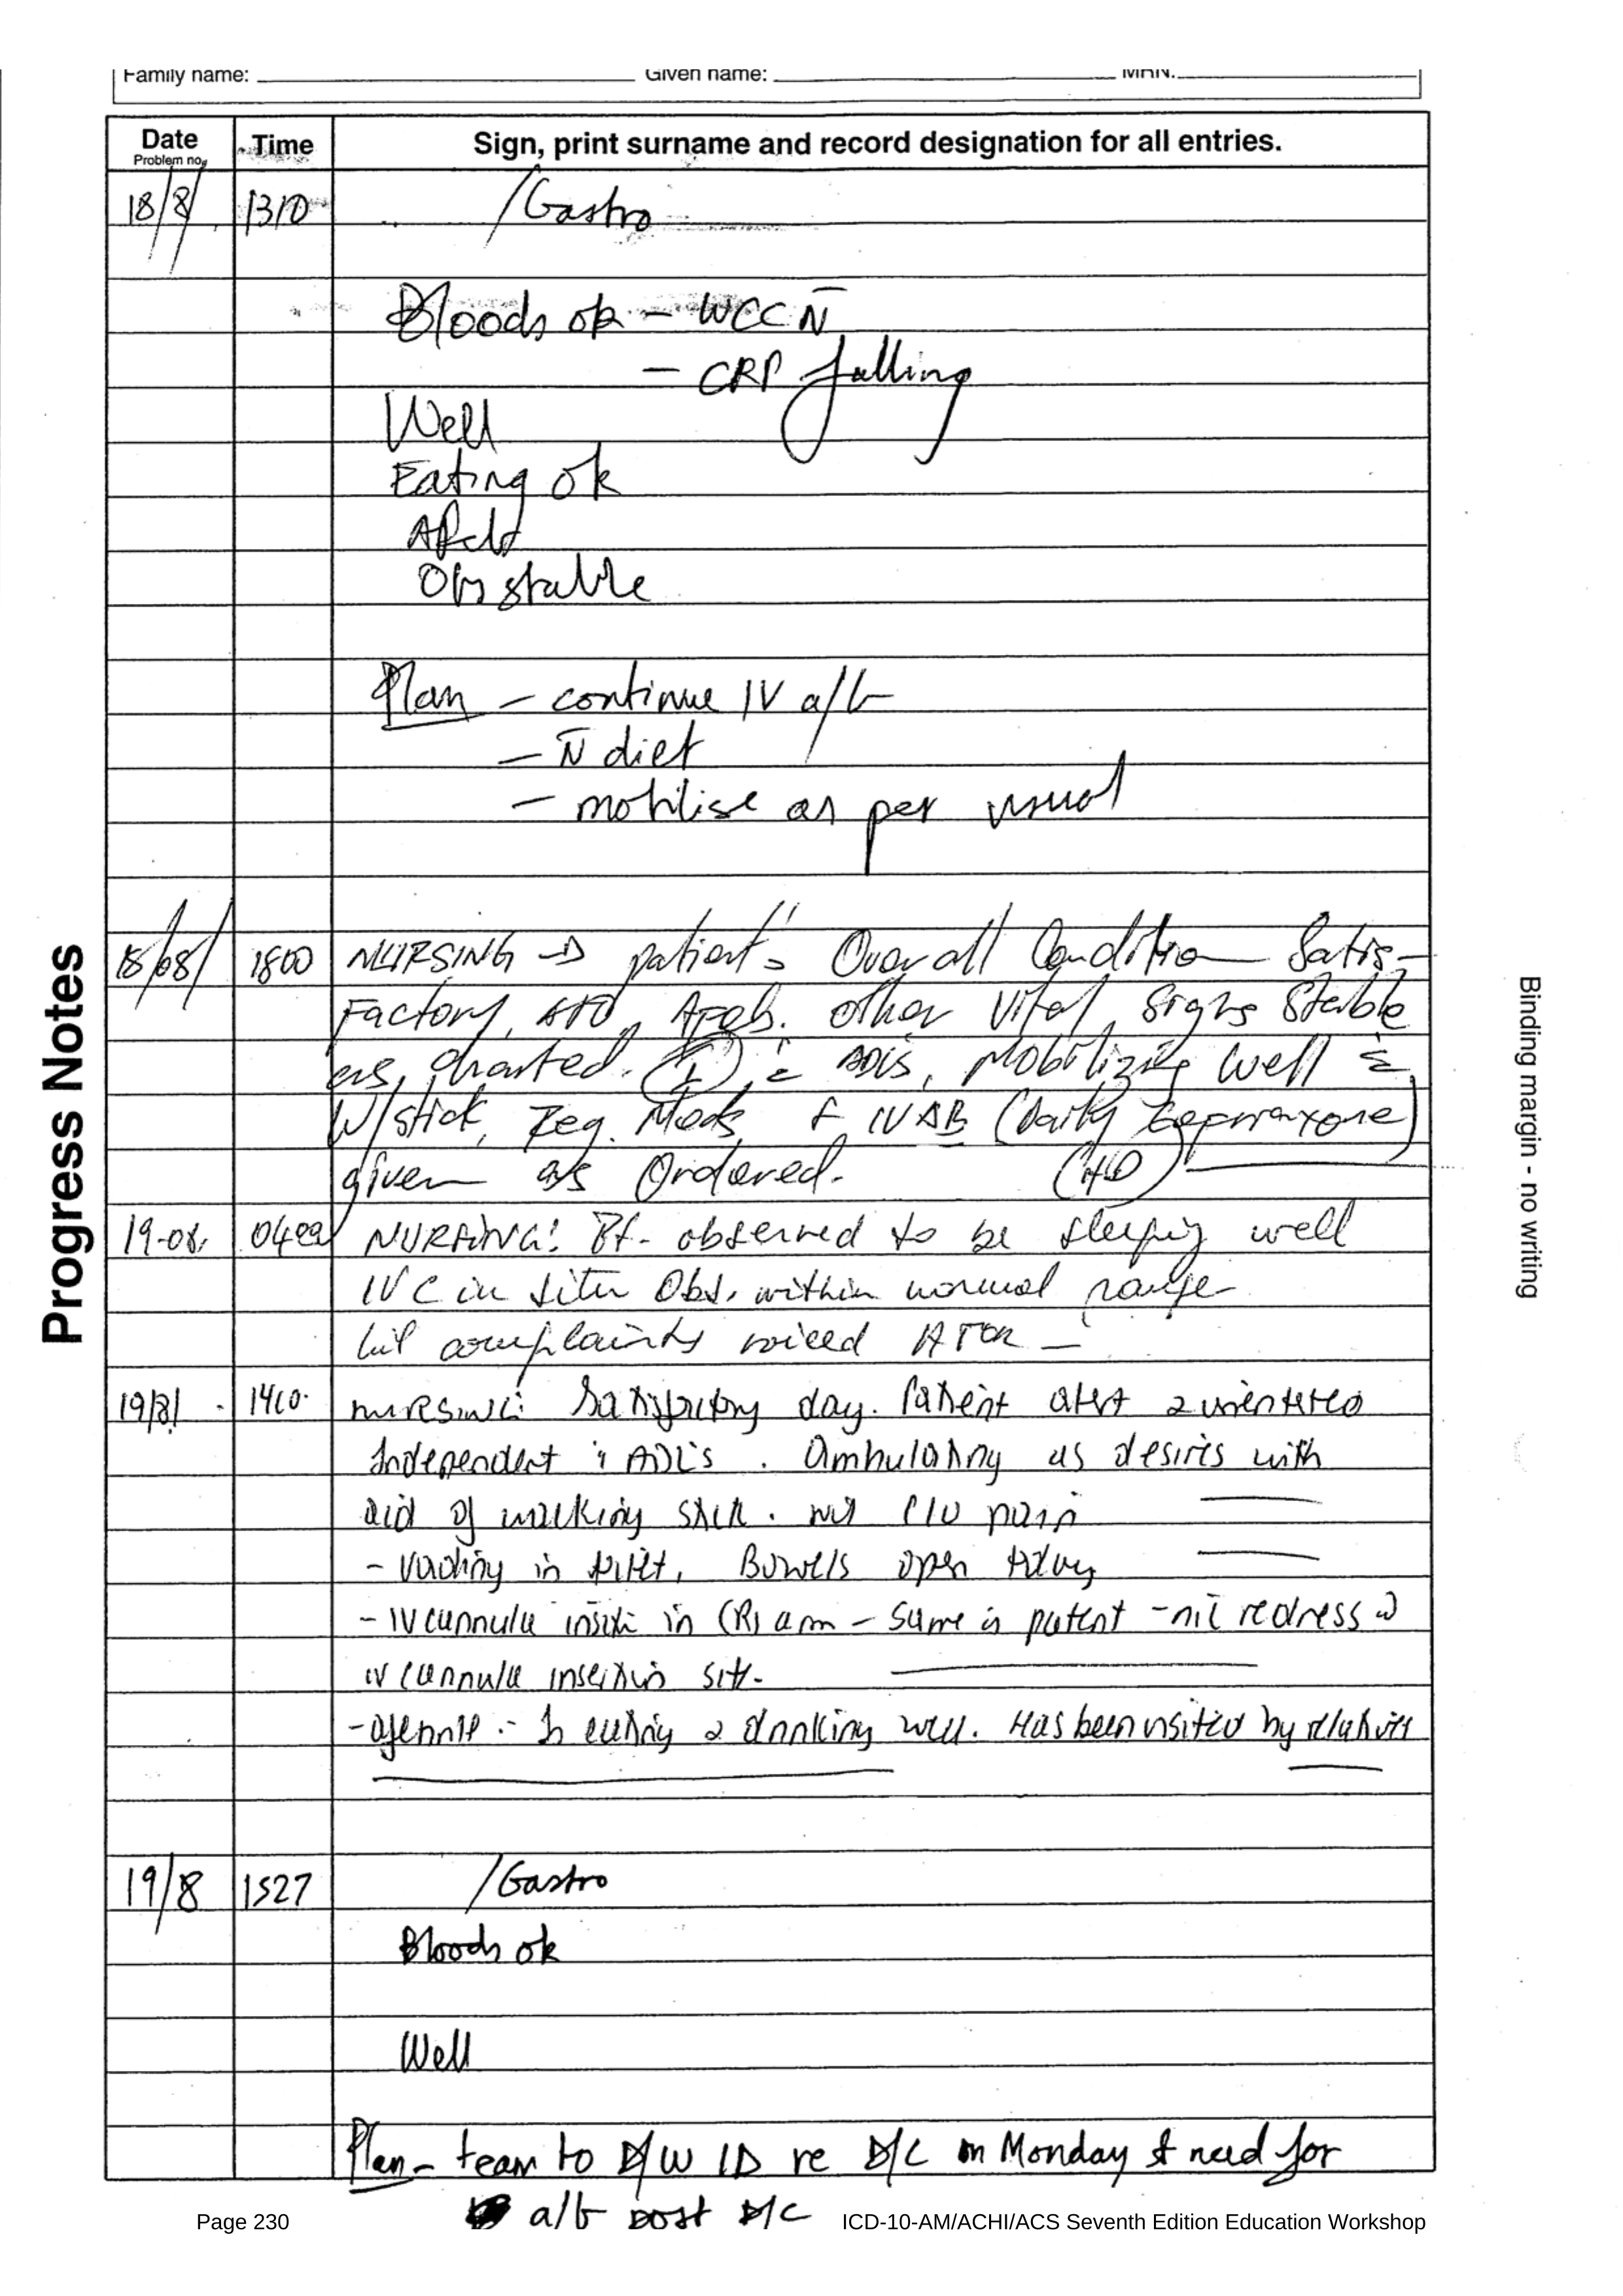 Family name: Given name: MRN:
Date Time Sign, print surname and record designation for all entries.
Problem no.
18/8/ 1310 /Gastro
Bloods ok - WCC N̄
- CRP falling
Well
Eating ok
Afeb
Obs stable
Plan - continue IV a/b
- N̄ diet
- mobilise as per usual
18/08/ 1800 NURSING → patient's Overall Condition Satis-
Factory, Afeb. other Vital Signs Stable
as charted. (I) c̄ ADLs, Mobilizing well c̄
W/stick, Reg. Meds & IVAB (Daily
given as Ordered.
19-08. 0400 NURSING: Pt. observed to be sleeping well
IVC in situ Obs. within normal range
nil complaints voiced ATOR —
19/8/ 1410. NURSING: Satisfactory day. Patient alert & orientered
Independent c̄ ADL's. Ambulating as desires with
aid of walking stick. nil C/O pain
- Voiding in toilet, Bowels open today
- IV cannula insitu in (R) arm - Same is patent - nil redness @
IV cannula insertion site.
- Is eating & drinking well. Has been visited by relatives
19/8 1527 /Gastro
Bloods ok
Well
Plan - team to D/W ID re D/C on Monday & need for
a/b post D/C
Progress Notes
Binding margin - no writing
Page 230 ICD-10-AM/ACHI/ACS Seventh Edition Education Workshop